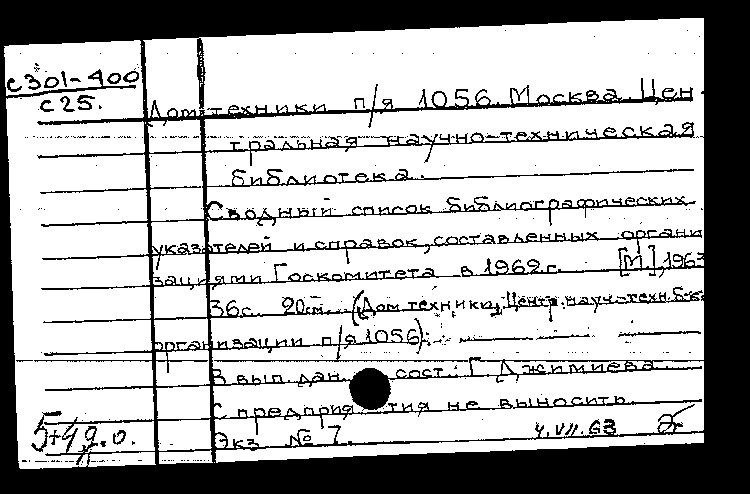 С301-400
С25.
Дом техники п/я 1056. Москва. Цен-
тральная научно-техническая
библиотека.
Сводный список библиографических
указателей и справок, составленных органи
зациями Госкомитета в 1962г. [М.], 1963
36с. 20см. (Дом техники, Центр. науч.-техн. б-ка
организации п/я 1056).
В вып. дан. сост.: Г. Джимиева
С предприятия не выносить.
Экз № 7. 4.VII.63
5+4д.о.